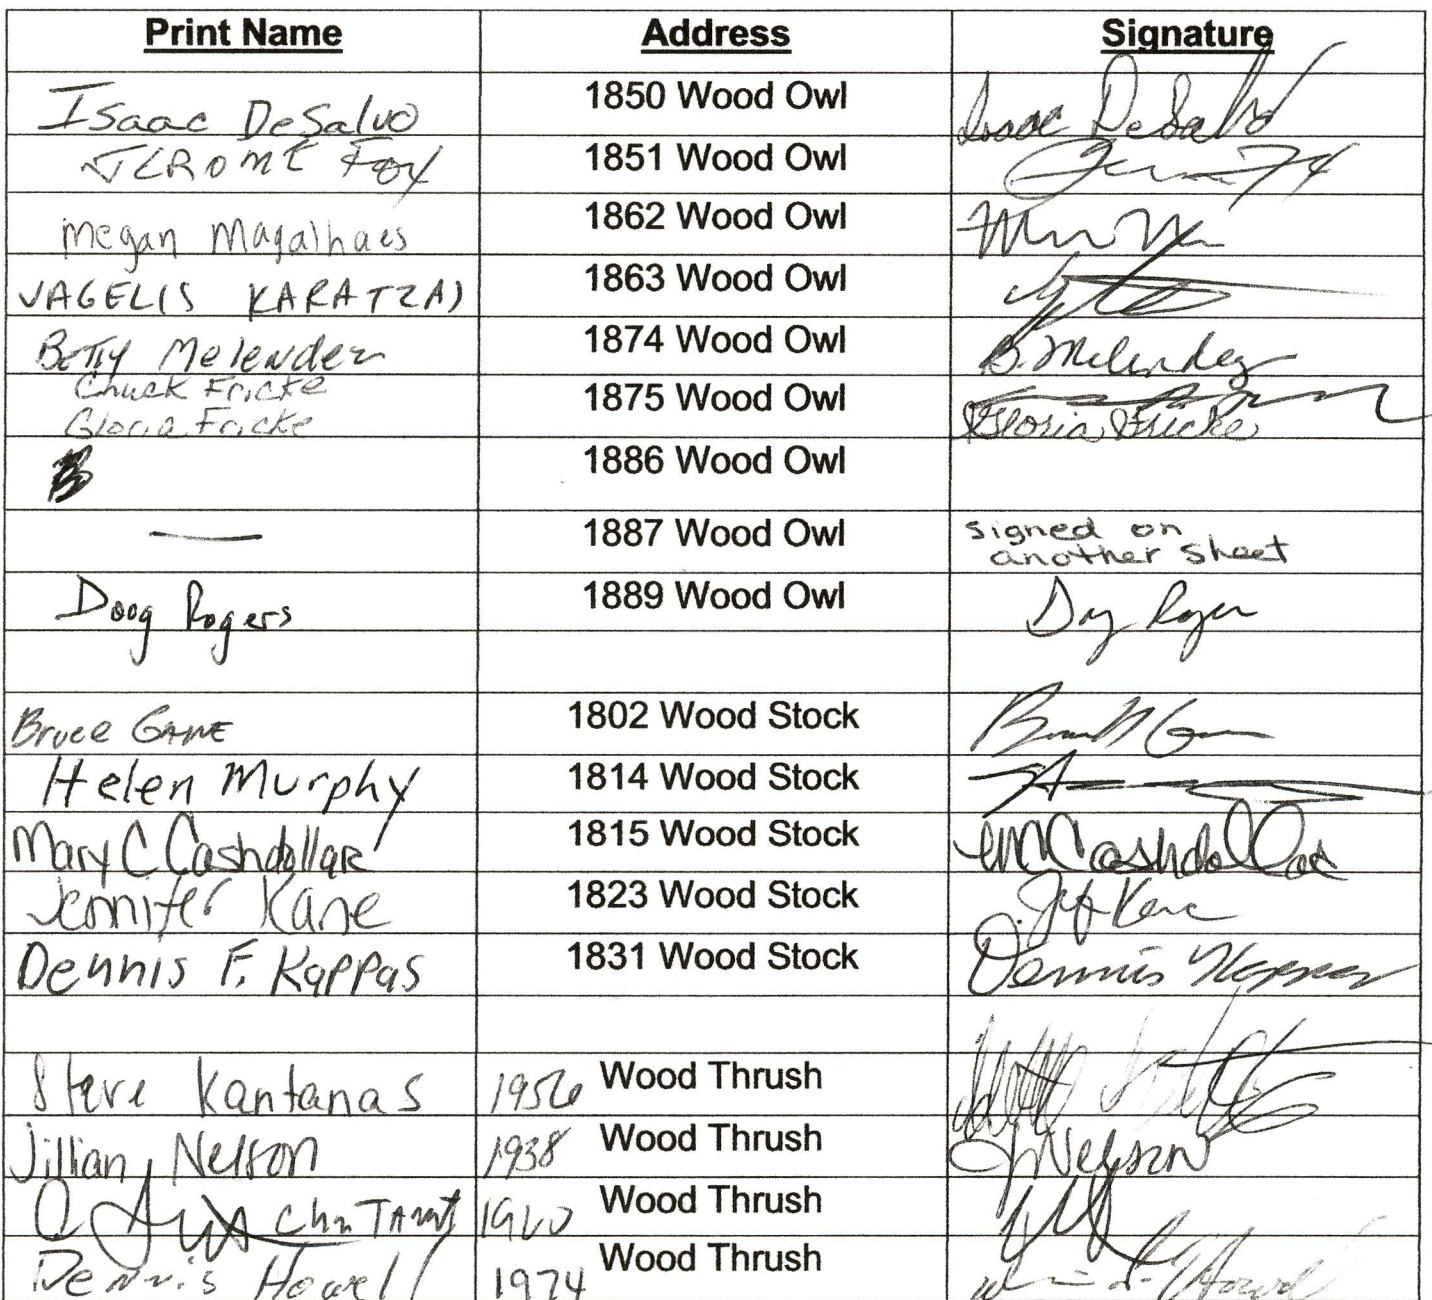 Print Name Address Signature
Isaac DeSalvo 1850 Wood Owl Isaac DeSalvo
JEROME Fox 1851 Wood Owl
Megan Magalhaes 1862 Wood Owl
VAGELIS KARATZAS 1863 Wood Owl
Betty Melendez 1874 Wood Owl B. Melendez
Chuck Fricke 1875 Wood Owl
Gloria Fricke Gloria Fricke
1886 Wood Owl
— 1887 Wood Owl signed on
another sheet
Doug Rogers 1889 Wood Owl Doug Rogers
Bruce GAME 1802 Wood Stock
Helen Murphy 1814 Wood Stock
Mary C Cashdollar 1815 Wood Stock MCCashdollar
Jennifer Kane 1823 Wood Stock Jf Kane
Dennis F. Kappas 1831 Wood Stock Dennis Kappas
Steve Kantanas 1956 Wood Thrush
Jillian Nelson 1938 Wood Thrush J Nelson
Wood Thrush
Dennis Howell 1974 Wood Thrush